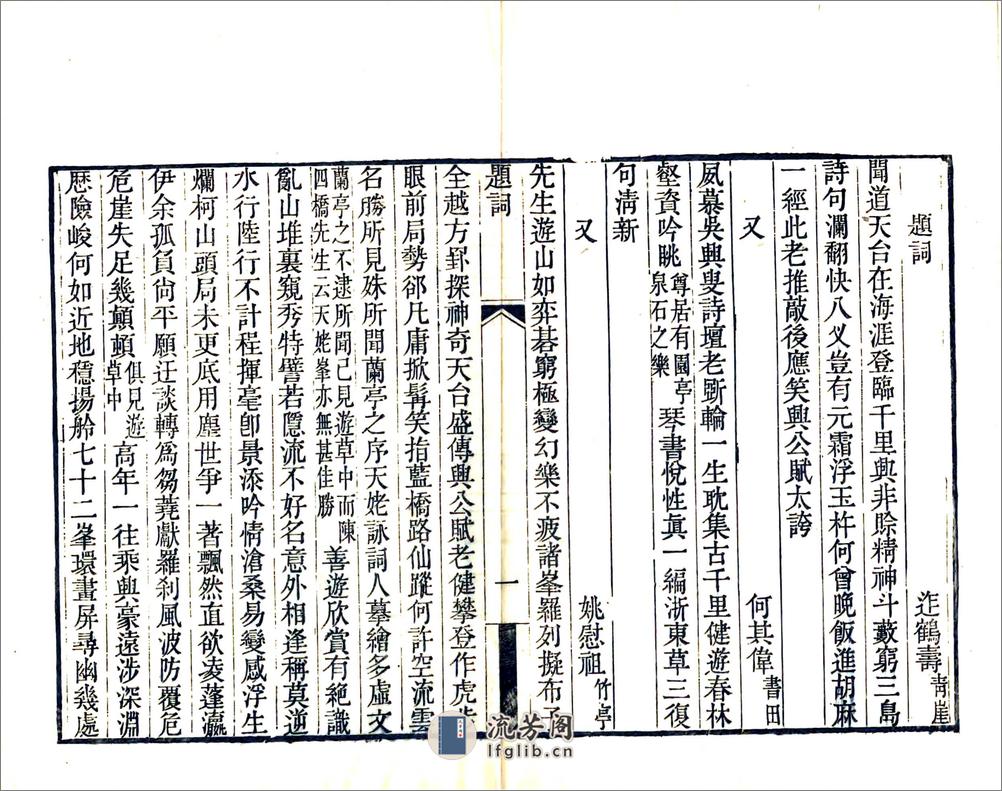 題詞　迮鶴壽青崖
聞道天台在海涯登臨千里興非賒精神斗藪窮三島
詩句瀾翻快八叉豈有元霜浮玉杵何曾晚飯進胡麻
一經此老推敲後應笑興公賦太誇
又　何其偉書田
夙慕吳興叟詩壇老斵輪一生耽集古千里健遊春林
壑資吟眺尊居有園亭泉石之樂琴書悅性眞一編浙東草三復
句淸新
又　姚慰祖竹亭
先生遊山如弈棊窮極變幻樂不疲諸峯羅列擬布子
題詞
一
全越方卦探神奇天台盛傳興公賦老健攀登作虎步
眼前局勢卻凡庸掀髯笑指藍橋路仙蹤何許空流雲
名勝所見殊所聞蘭亭之序天姥詠詞人摹繪多虛文
蘭亭之不逮所聞已見遊草中而陳四橋先生云天姥峯亦無甚佳勝善遊欣賞有絕識
亂山堆裏窺秀特譬若隱流不好名意外相逢稱莫逆
水行陸行不計程揮毫卽景添吟情滄桑易變感浮生
爛柯山頭局未更底用塵世爭一著飄然直欲凌蓬瀛
伊余孤負尙平願迂談轉爲芻蕘獻羅刹風波防覆危
危崖失足幾顚頓俱見遊草中高年一往乘興豪遠涉深淵
歷險峻何如近地穩揚舲七十二峯環畫屏尋幽幾處
流芳阁
lfglib.cn